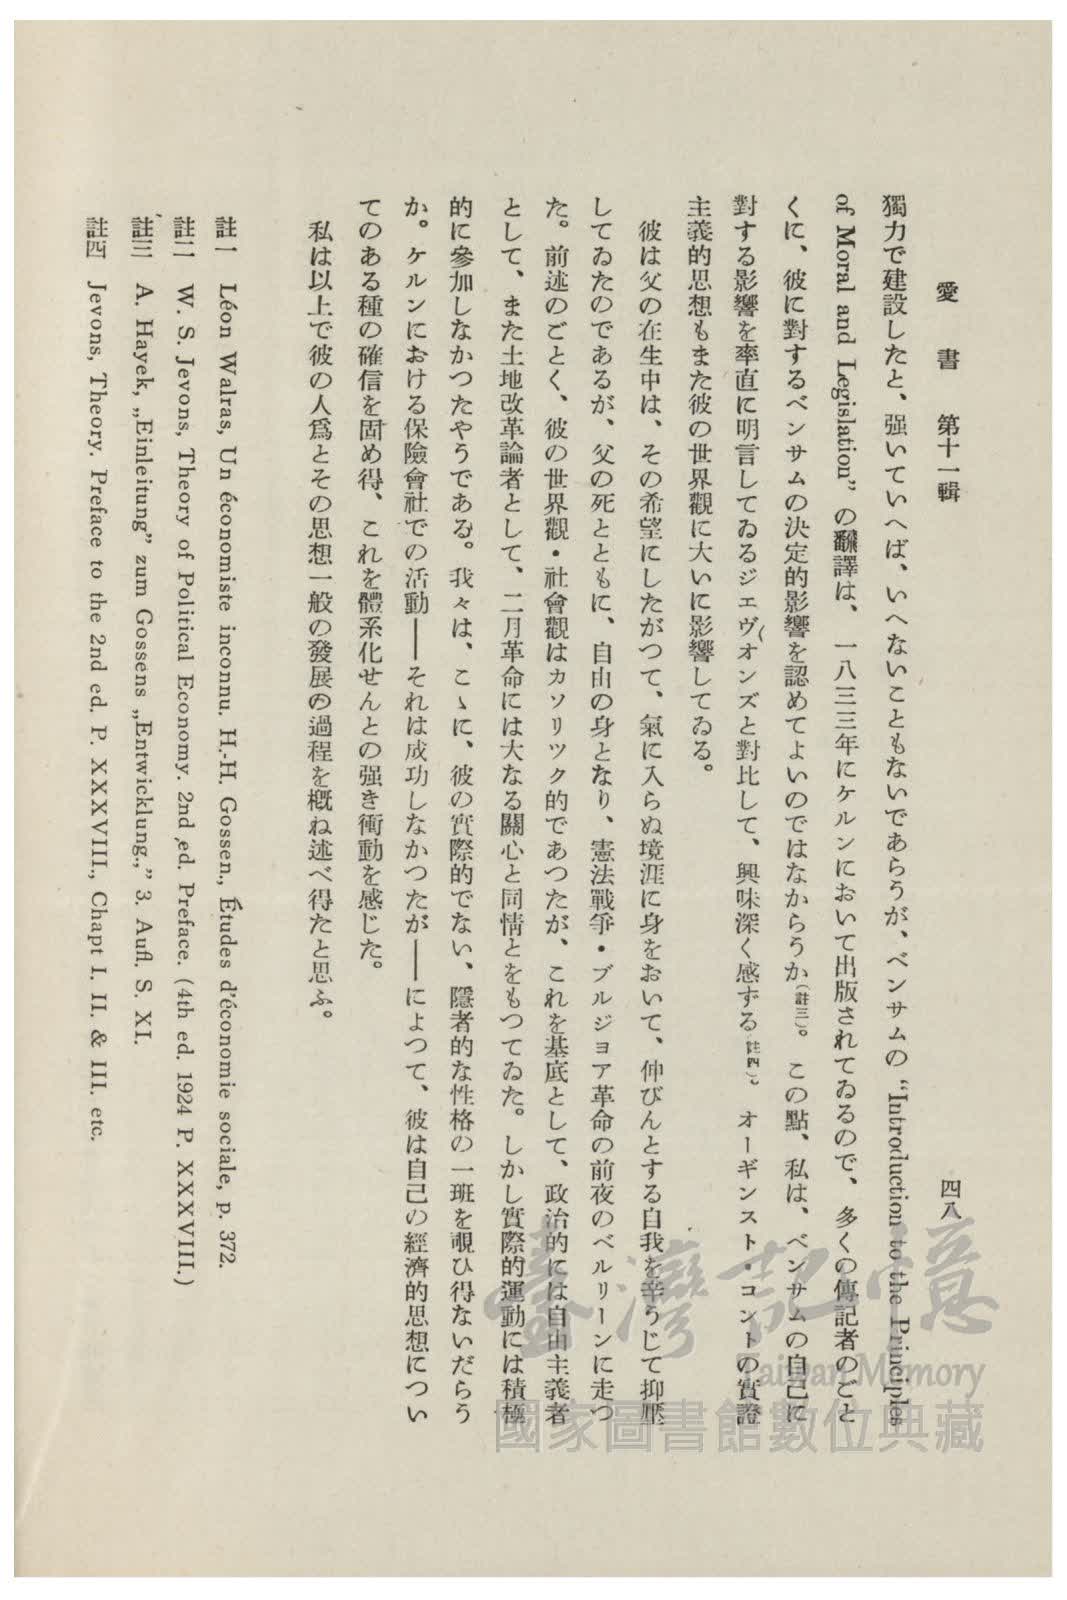 愛書 第十一輯
四八
獨力で建設したと、强いていへば、いへないこともないであらうが、ベンサムの “Introduction to the Principles
of Moral and Legislation” の飜譯は、一八三三年にケルンにおいて出版されてゐるので、多くの傳記者のごと
くに、彼に對するベンサムの決定的影響を認めてよいのではなからうか(註三)。この點、私は、ベンサムの自己に
對する影響を率直に明言してゐるジエヴオンズと對比して、興味深く感ずる(註四)。オーギンスト・コントの實證
主義的思想もまた彼の世界觀に大いに影響してゐる。
彼は父の在生中は、その希望にしたがつて、氣に入らぬ境涯に身をおいて、伸びんとする自我を辛うじて抑壓
してゐたのであるが、父の死とともに、自由の身となり、憲法戰爭・ブルジヨア革命の前夜のベルリーンに走つ
た。前述のごとく、彼の世界觀・社會觀はカソリツク的であつたが、これを基底として、政治的には自由主義者
として、また土地改革論者として、二月革命には大なる關心と同情とをもつてゐた。しかし實際的運動には積極
的に參加しなかつたやうである。我々は、こゝに、彼の實際的でない、隱者的な性格の一班を覗ひ得ないだらう
か。ケルンにおける保險會社での活動――それは成功しなかつたが――によつて、彼は自己の經濟的思想につい
てのある種の確信を固め得、これを體系化せんとの强き衝動を感じた。
私は以上で彼の人爲とその思想一般の發展の過程を槪ね述べ得たと思ふ。
註一 Léon Walras, Un économiste inconnu. H.-H. Gossen., Études d'économie sociale, p. 372.
註二 W. S. Jevons, Theory of Political Economy. 2nd ed. Preface. (4th ed. 1924 P. XXXVIII.)
註三 A. Hayek, „Einleitung” zum Gossens „Entwicklung.,” 3. Aufl. S. XI.
註四 Jevons, Theory. Preface to the 2nd ed. P. XXXVIII., Chapt I. II. & III. etc.
臺灣記憶
Taiwan Memory
國家圖書館數位典藏